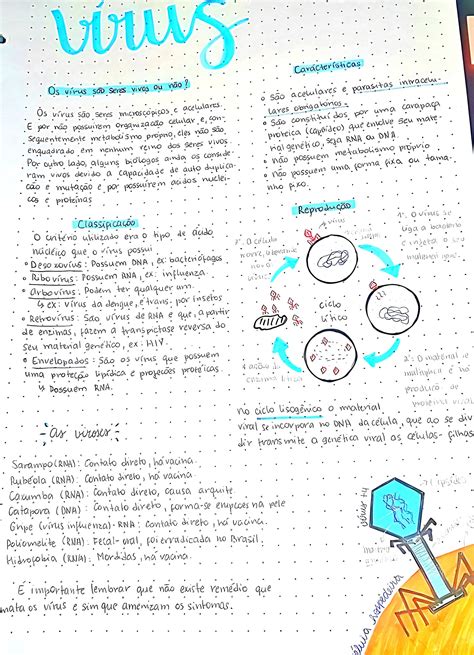 vírus
Os vírus são seres vivos ou não?
Os vírus são seres microscópicos e acelulares.
E por não possuirem organização celular e, con-
sequentemente metabolismo próprio, eles não são
enquadrado em nenhum reino dos seres vivos.
Por outro lado, alguns biólogos ainda os conside-
ram vivos devido a capacidade de auto duplica-
ção e mutação e por possuírem ácidos nuclei-
cos e proteínas
Características
são acelulares e parasitas intracelu-
lares obrigatórios.
são constituídos por uma carapaça
proteica (capsídeo) que envolve seu mate-
rial genético, seja RNA ou DNA.
não possuem metabolismo próprio
não possuem uma forma fixa ou tama-
nho fixo.
Classificação
O critério utilizado era o tipo de ácido
nucléico que o vírus possui
Desoxovírus: Possuem DNA, ex: bacteriófagos
Ribovírus: Possuem RNA, ex: influenza.
Arbovírus: Podem ter qualquer um.
↳ ex: vírus da dengue, é trans. por insetos
Retrovírus: São vírus de RNA e que, a partir
de enzimas, fazem a transcriptase reversa do
seu material genético, ex: HIV.
Envelopados: São os vírus que possuem
uma proteção lipídica e projeções protéicas.
↳ Possuem RNA.
Reprodução
vírus
1º. O vírus se
liga a bactéria
e injeta o seu
material gen.
2º. O material
maligno é
produzido
proteína viral
4 ação
enzima lítica
5º. O célula
morre, liberando
ciclo
lítico
No ciclo lisogênico o material
viral se incorpora no DNA da célula, que ao se divi
dir transmite a genética viral as células-filhas
as viroses:
Sarampo (RNA): Contato direto, há vacina.
Rubéola (RNA): Contato direto, há vacina
Caxumba (RNA): Contato direto, causa orquite.
Catapora (DNA): Contato direto, forma-se erupções na pele
Gripe (vírus influenza)- RNA: Contato direto, há vacina.
Poliomielite (RNA): Fecal-oral, foi erradicada no Brasil.
Hidrofobia (RNA): Mordidas, há vacina.
É importante lembrar que não existe remédio que
mata os vírus e sim que amenizam os sintomas.
célula hospedeira